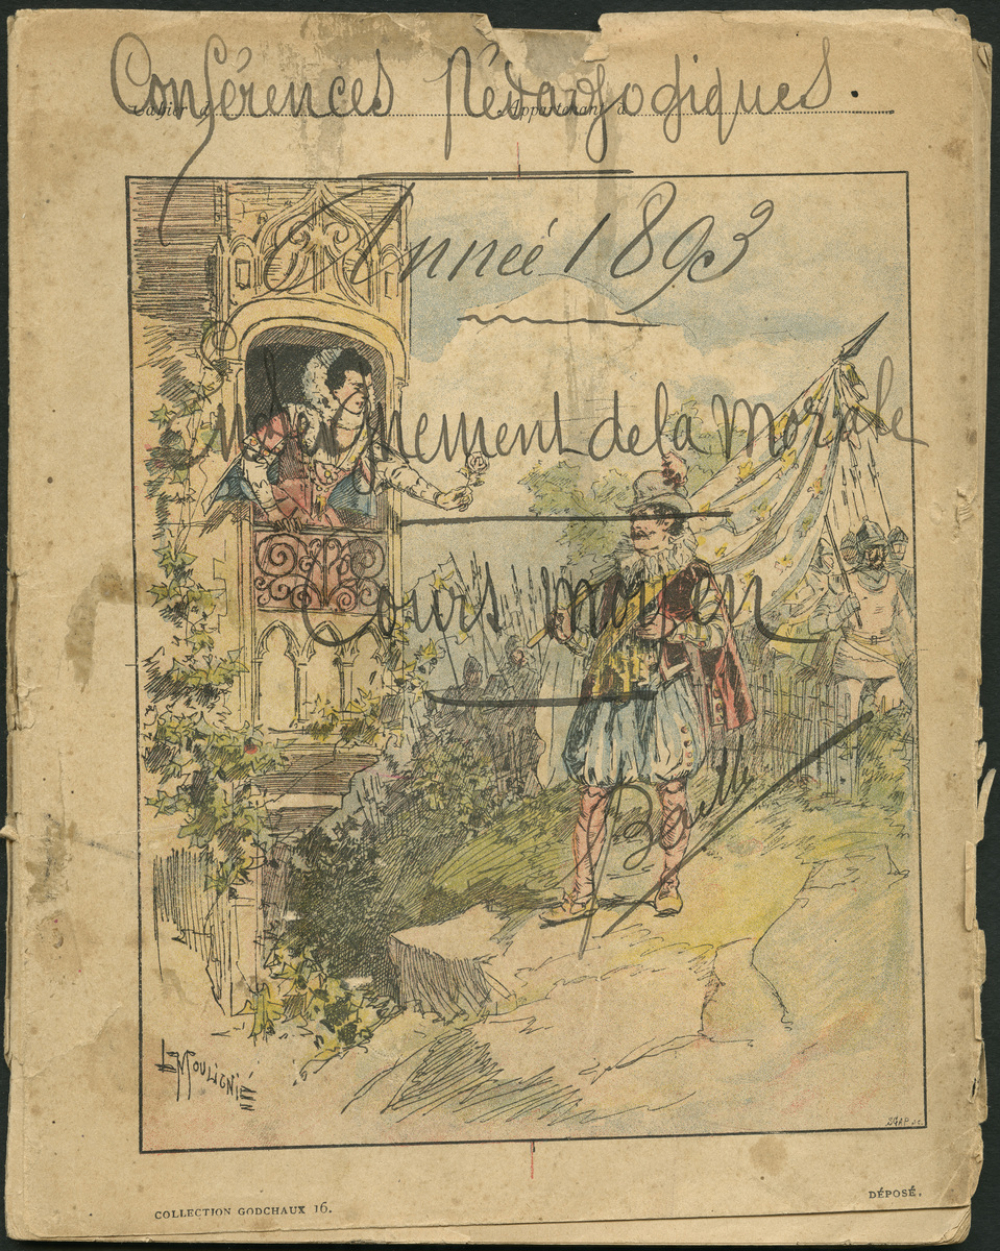 Conférences Pédagogiques.
Cahier d Appartenant à
Année 1893
Enseignement de la Morale
Cours moyen
L. Moulignié
COLLECTION GODCHAUX 16.
DÉPOSÉ.